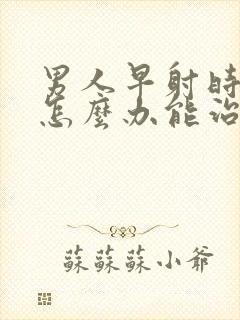 男人早射時
怎麼办能治
蘇蘇蘇小爺